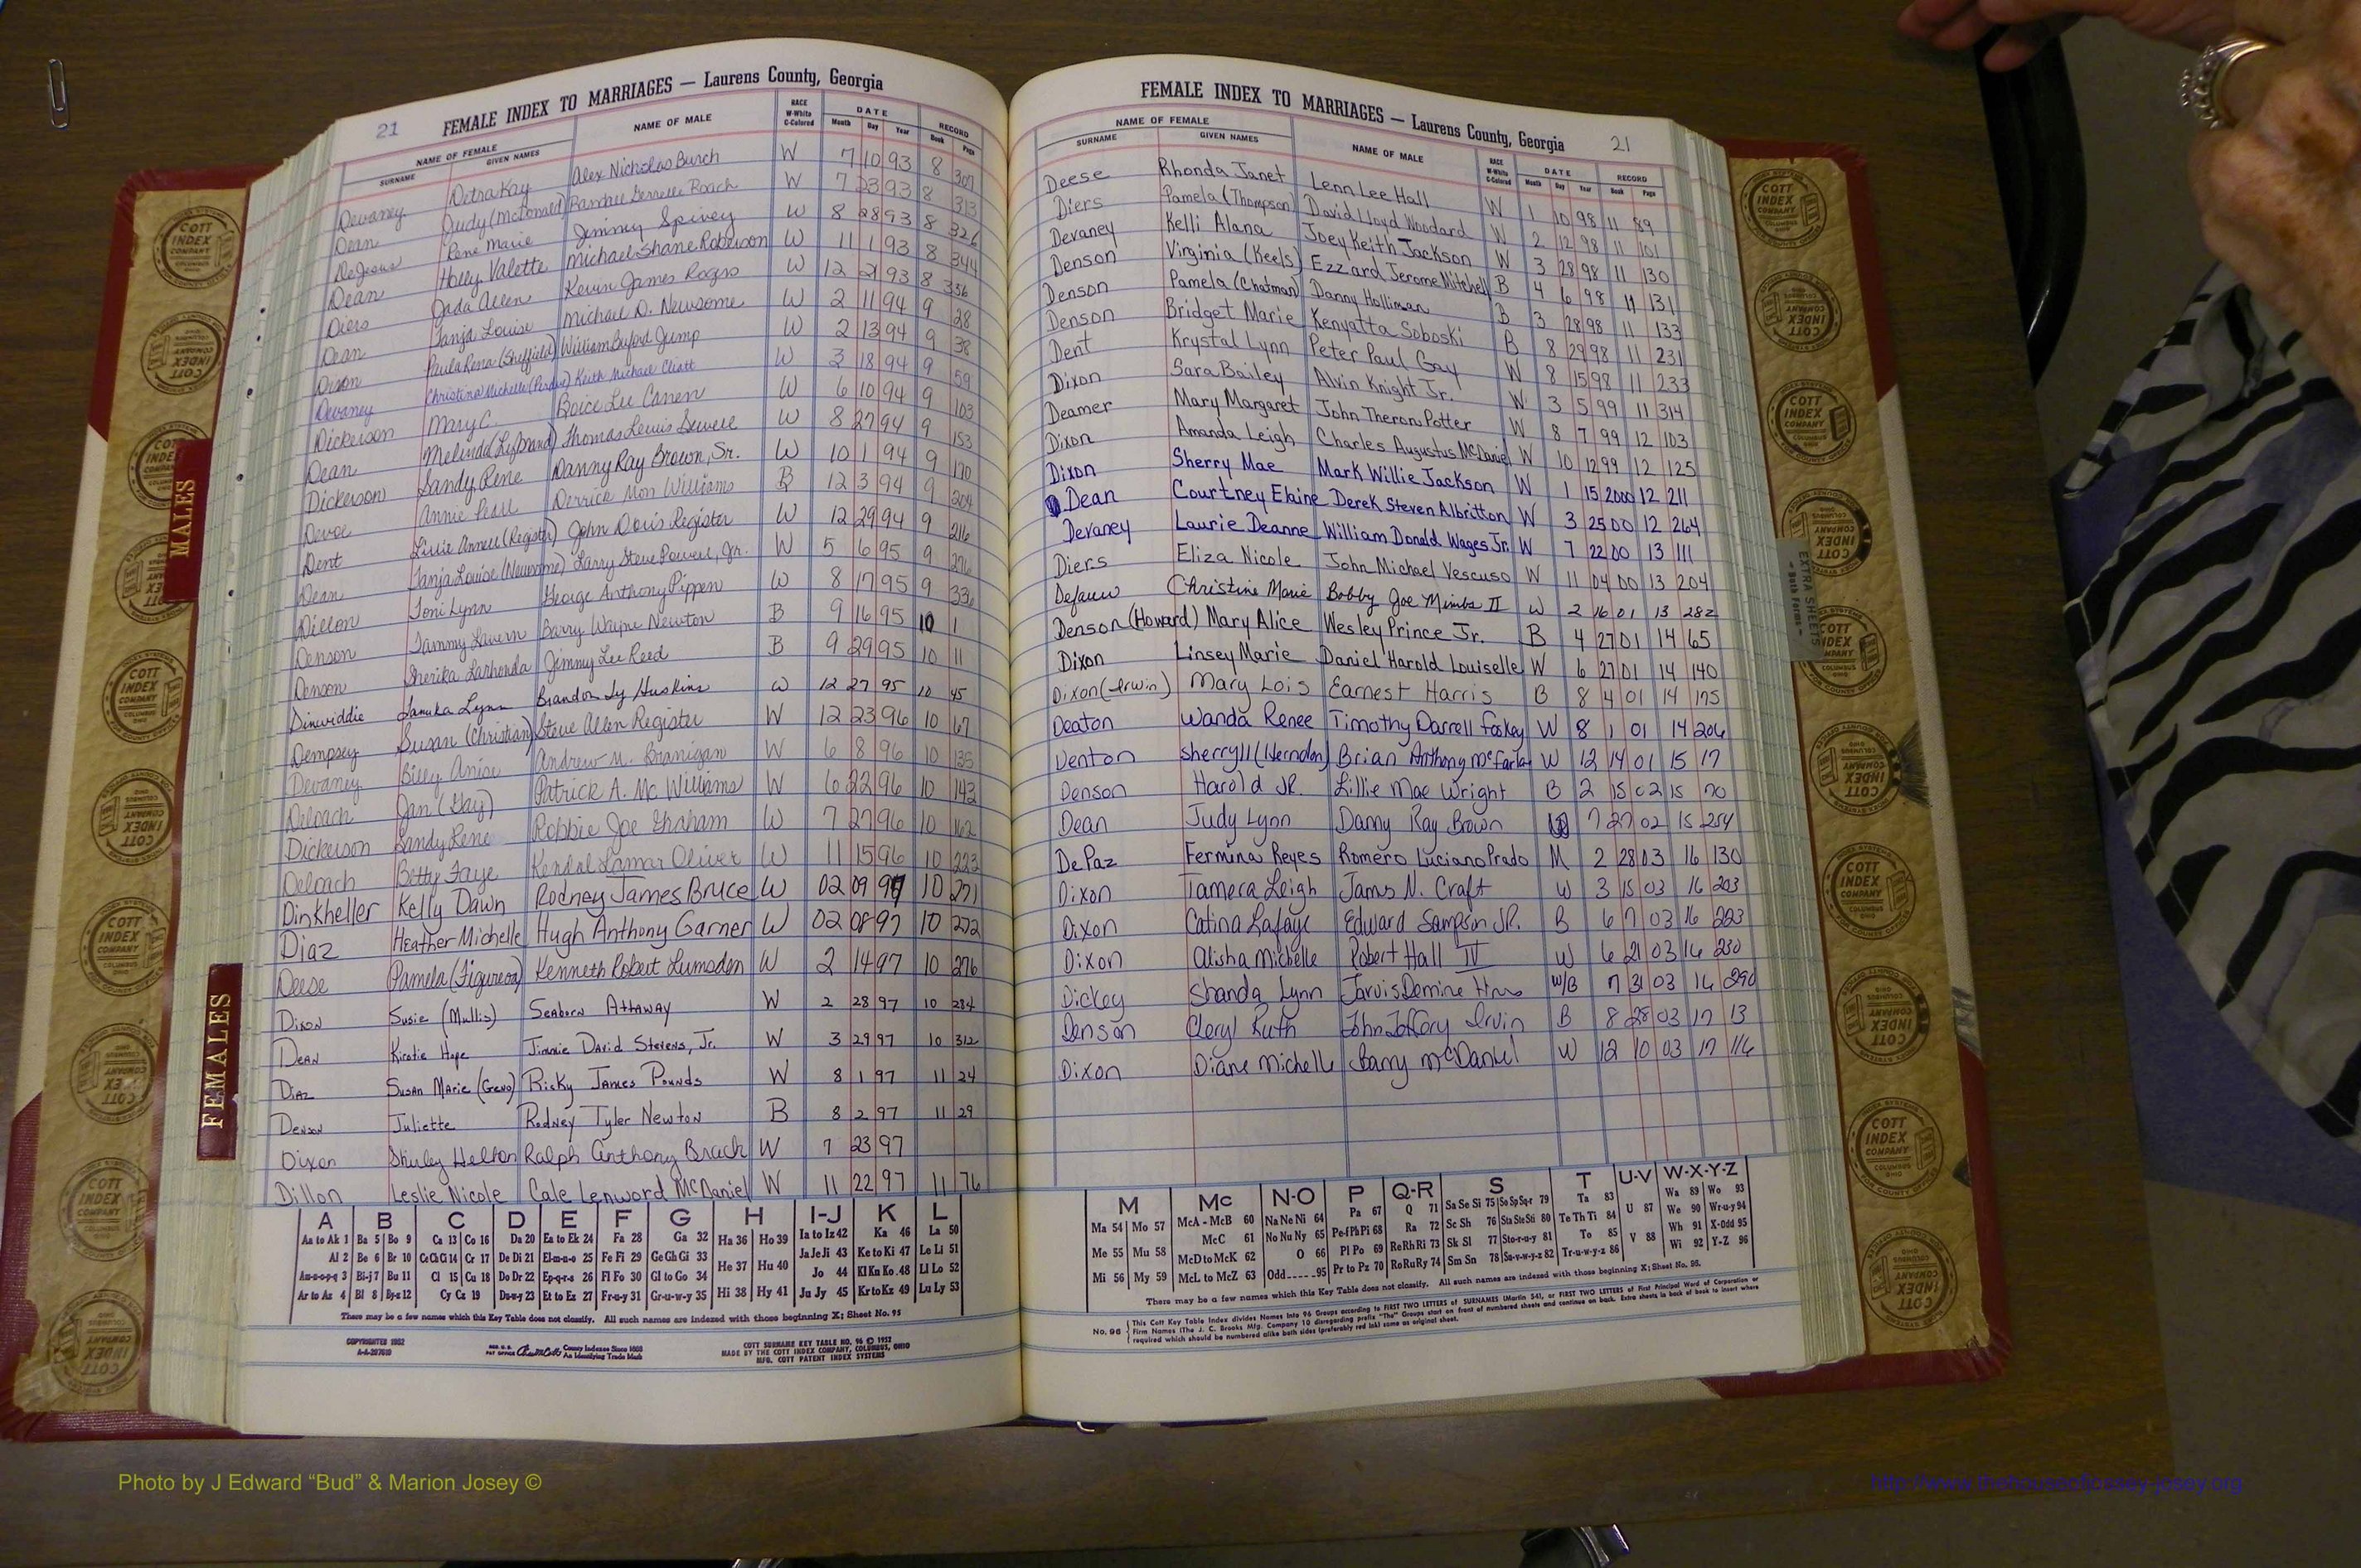 21 FEMALE INDEX TO MARRIAGES — Laurens County, Georgia
NAME OF FEMALE
SURNAME GIVEN NAMES NAME OF MALE RACE W-White C-Colored DATE Month Day Year RECORD Book Page
Devaney Detra Kay Alex Nicholas Burch W 7 10 93 8 307
Dean Judy (McDonald) Roach W 7 23 93 8 313
DeJesus Rene Marie Jimmy Spivey W 8 28 93 8 326
Dean Holly Valette Michael Shane Roberson W 11 1 93 8 344
Diers Jada Allen Kevin James Rogers W 12 21 93 8 356
Dean Tanja Louise Michael D. Newsome W 2 11 94 9 28
Dixon Paula Rena (Sheffield) William Buford Jump W 2 13 94 9 38
Devaney Christina Michelle Keith Michael Cliatt W 3 18 94 9 59
Dickerson Mary C. Boice Lee W 6 10 94 9 103
Dean Melinda Thomas Lewis Sewell W 8 27 94 9 153
Dickerson Sandy Rene Danny Ray Brown, Sr. W 10 1 94 9 170
Devoe Annie Pearl Derrick Mon Williams B 12 3 94 9 204
Dent Lillie Annell (Register) John Doris Register W 12 29 94 9 216
Dean Tanja Louise (Newsome) Larry Steve Powell, Jr. W 5 6 95 9 276
Dillon Toni Lynn George Anthony Pippen W 8 17 95 9
Denson Tammy Lavern Barry Wayne Newton B 9 16 95 10 1
Denson Sherika Lashonda Jimmy Lee Reed B 9 29 95 10 11
Dinwiddie Lynn Brandon Ly Huskins W 12 27 95 10 45
Dempsey Susan (Christian) Steve Allen Register W 12 23 96 10 67
Devaney Billy Anise Andrew M. Branigan W 6 8 96 10 135
Deloach Jan (Gay) Patrick A. McWilliams W 6 22 96 10 143
Dickerson Sandy Rene Robbie Joe Graham W 7 27 96 10 162
Deloach Betty Faye Kendal Lamar Oliver W 11 15 96 10 223
Dinkheller Kelly Dawn Rodney James Bruce W 02 09 97 10 271
Diaz Heather Michelle Hugh Anthony Garner W 02 08 97 10 272
Deese Pamela (Figueroa) Kenneth Robert Lumsden W 2 14 97 10 276
Dixon Susie (Mullis) Seaborn Attaway W 2 28 97 10 284
Dean Kirstie Hope Jimmie David Stevens, Jr. W 3 29 97 10 312
Diaz Susan Marie (Geno) Ricky James Pounds W 8 1 97 11 24
Denson Juliette Rodney Tyler Newton B 8 2 97 11 29
Dixon Shirley Helton Ralph Anthony Brack W 7 23 97
Dillon Leslie Nicole Cale Lenword McDaniel W 11 22 97 11 76
A B C D E F G H I-J K L
Aa to Ak 1 Ba 5 Bo 9 Ca 13 Co 16 Da 20 Ea to Ek 24 Fa 28 Ga 32 Ha 36 Ho 39 Ia to Iz 42 Ka 46 La 50
Al 2 Be 6 Br 10 Ce Ch Ci 14 Cr 17 De Di 21 El-m-n-o 25 Fe Fi 29 Ge Gh Gi 33 He 37 Hu 40 Ja Je Ji 43 Ke to Ki 47 Le Li 51
Am-n-o-p-q 3 Bi-j 7 Bu 11 Cl 15 Cu 18 Do Dr 22 Ep-q-r-s 26 Fl Fo 30 Gl to Go 34 Hi 38 Hy 41 Jo 44 Kl Kn Ko 48 Ll Lo 52
Ar to Az 4 Bl 8 By-z 12 Cy Cz 19 Du-w-y 23 Et to Ez 27 Fr-u-y 31 Gr-u-w-y 35 Ju Jy 45 Kr to Kz 49 Lu Ly 53
There may be a few names which this Key Table does not classify. All such names are indexed with those beginning X; Sheet No. 95
COPYRIGHTED 1952
County Indexes Since 1888
An Identifying Trade Mark
COTT SURNAME KEY TABLE NO. 96 © 1952
MADE BY THE COTT INDEX COMPANY, COLUMBUS, OHIO
MFG. COTT PATENT INDEX SYSTEMS
FEMALE INDEX TO MARRIAGES — Laurens County, Georgia 21
NAME OF FEMALE
SURNAME GIVEN NAMES NAME OF MALE RACE W-White C-Colored DATE Month Day Year RECORD Book Page
Deese Rhonda Janet Lenn Lee Hall W 1 10 98 11 89
Diers Pamela (Thompson) David Lloyd Woodard W 2 12 98 11 101
Devaney Kelli Alana Joey Keith Jackson W 3 28 98 11 130
Denson Virginia (Keels) Ezzard Jerome Mitchell B 4 6 98 11 131
Denson Pamela (Chatman) Danny Holliman B 3 28 98 11 133
Denson Bridget Marie Kenyatta Soboski B 8 29 98 11 231
Dent Krystal Lynn Peter Paul Gay W 8 15 98 11 233
Dixon Sara Bailey Alvin Knight Jr. W 3 5 99 11 314
Deamer Mary Margaret John Theron Potter W 8 7 99 12 103
Dixon Amanda Leigh Charles Augustus McDaniel W 10 12 99 12 125
Dixon Sherry Mae Mark Willie Jackson W 1 15 2000 12 211
Dean Courtney Elaine Derek Steven Albritton W 3 25 00 12 264
Devaney Laurie Deanne William Donald Wages Jr. W 7 22 00 13 111
Diers Eliza Nicole John Michael Vescuso W 11 04 00 13 204
Defauw Christine Marie Bobby Joe Mimbs II W 2 16 01 13 282
Denson (Howard) Mary Alice Wesley Prince Jr. B 4 27 01 14 65
Dixon Linsey Marie Daniel Harold Louiselle W 6 27 01 14 140
Dixon (Irwin) Mary Lois Earnest Harris B 8 4 01 14 175
Deaton Wanda Renee Timothy Darrell Foskey W 8 1 01 14 206
Denton Sherryll (Herndon) Brian Anthony McFarlan W 12 14 01 15 17
Denson Harold JR. Lillie Mae Wright B 2 15 02 15 70
Dean Judy Lynn Danny Ray Brown W 7 27 02 15 254
DePaz Fermina Reyes Romero Luciano Prado M 2 28 03 16 130
Dixon Tamera Leigh Jams N. Craft W 3 15 03 16 203
Dixon Catina Lafaye Edward Sampson JR. B 6 7 03 16 223
Dixon Alisha Michelle Robert Hall IV W 6 21 03 16 230
Dickey Shanda Lynn Jarvis Demine W/B 7 31 03 16 290
Denson Cleryl Ruth John Jeffory Irvin B 8 28 03 17 13
Dixon Diane Michelle Barry McDaniel W 12 10 03 17 116
M Mc N-O P Q-R S T U-V W-X-Y-Z
Ma 54 Mo 57 McA - McB 60 Na Ne Ni 64 Pa 67 Q 71 Sa Se Si 75 So Sp Sq-r 79 Ta 83 U 87 Wa 89 Wo 93
Me 55 Mu 58 McC 61 No Nu Ny 65 Pe-f Ph Pi 68 Ra 72 Sc Sh 76 Sta Ste Sti 80 Te Th Ti 84 V 88 We 90 Wr-u-y 94
Mi 56 My 59 McD to McK 62 O 66 Pl Po 69 Re Rh Ri 73 Sk Sl 77 Sto-r-u-y 81 To 85 Wh 91 X-Odd 95
McL to McZ 63 Odd 95 Pr to Pz 70 Ro Ru Ry 74 Sm Sn 78 Su-v-w-y-z 82 Tr-u-w-y-z 86 Wi 92 Y-Z 96
There may be a few names which this Key Table does not classify. All such names are indexed with those beginning X; Sheet No. 95.
No. 96
This Cott Key Table Index divides Names Into 96 Groups according to FIRST TWO LETTERS of SURNAMES (Martin 54), or FIRST TWO LETTERS of First Principal Word of Corporation or
Firm Names (The J. C. Brooks Mfg. Company 10 disregarding prefix "The" Groups start on front of numbered sheets and continue on back. Extra sheets in back of book to insert where
required which should be numbered alike both sides (preferably red ink) same as original sheet.
MALES
FEMALES
EXTRA SHEETS
- Both Forms -
COTT INDEX COMPANY
COLUMBUS OHIO
Photo by J Edward “Bud” & Marion Josey ©
http://www.thehouseofjossey-josey.org